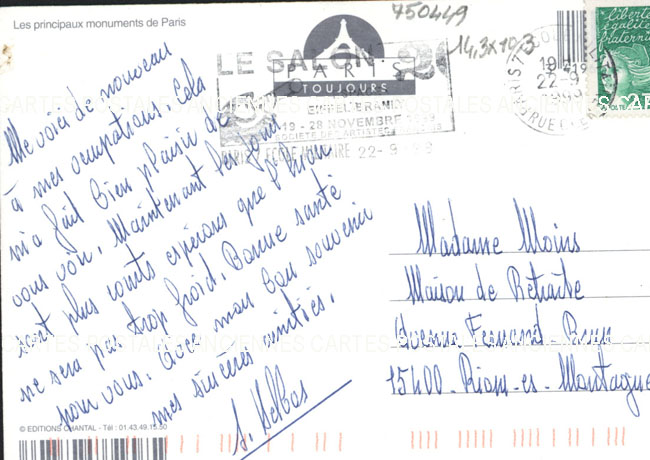 Les principaux monuments de Paris
750449
14,3x10,3
LE SALON
PARIS
TOUJOURS
EIFFEL BRANLY
19 - 28 NOVEMBRE
22-9
liberté
égalité
fraternité
19
22-9
Me voici de nouveau
à mes occupations. Cela
m'a fait bien plaisir de
vous voir. Maintenant les jours
sont plus courts espérons que l'hiver
ne sera pas trop froid. Bonne santé
pour vous. Avec mon bon souvenir
mes sincères amitiés.
Madame Moins
Maison de Retraite
Avenue Fernand Brun
15400 - Riom-es-Montagne
© EDITIONS CHANTAL - Tél : 01.43.49.15.50
CARTES POSTALES ANCIENNES